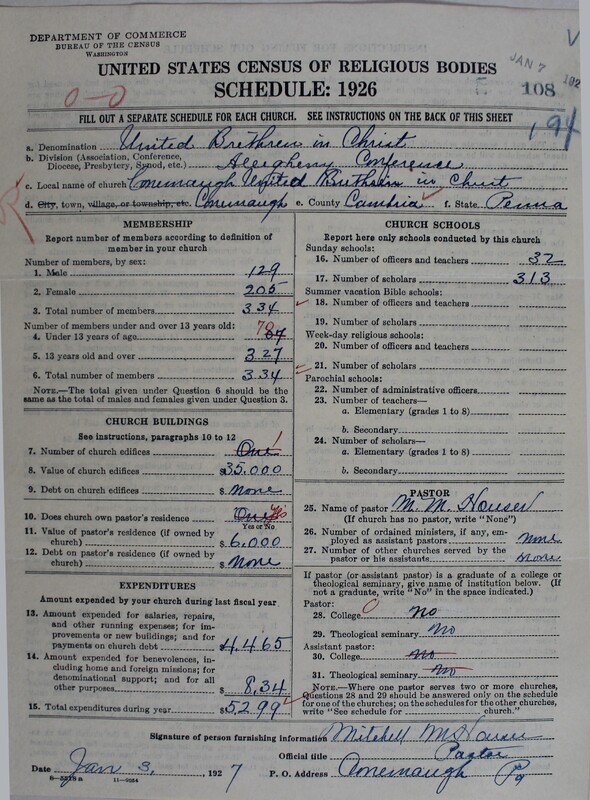 DEPARTMENT OF COMMERCE
BUREAU OF THE CENSUS
WASHINGTON
UNITED STATES CENSUS OF RELIGIOUS BODIES
SCHEDULE: 1926
JAN 7 192
108
V
0-0
FILL OUT A SEPARATE SCHEDULE FOR EACH CHURCH. SEE INSTRUCTIONS ON THE BACK OF THIS SHEET
194
a. Denomination United Brethren in Christ
b. Division (Association, Conference, Diocese, Presbytery, Synod, etc.) Allegheny Conference
c. Local name of church Conemaugh United Brethren in Christ
d. City, town, village, or township, etc. Conemaugh e. County Cambria f. State Penna
MEMBERSHIP
Report number of members according to definition of
member in your church
Number of members, by sex:
1. Male 129
2. Female 205
3. Total number of members 334
Number of members under and over 13 years old:
4. Under 13 years of age 7
5. 13 years old and over 327
6. Total number of members 334
NOTE.—The total given under Question 6 should be
the same as the total of males and females given under Question 3.
CHURCH BUILDINGS
See instructions, paragraphs 10 to 12
7. Number of church edifices One 1
8. Value of church edifices $35.000
9. Debt on church edifices $None
10. Does church own pastor's residence One
Yes or No
11. Value of pastor's residence (if owned by
church) $6,000
12. Debt on pastor's residence (if owned by
church) $None
EXPENDITURES
Amount expended by your church during last fiscal year
13. Amount expended for salaries, repairs,
and other running expenses; for im-
provements or new buildings; and for
payments on church debt $4,465
14. Amount expended for benevolences, in-
cluding home and foreign missions; for
denominational support; and for all
other purposes $8,34
15. Total expenditures during year $5299
CHURCH SCHOOLS
Report here only schools conducted by this church
Sunday schools:
16. Number of officers and teachers 32
17. Number of scholars 313
Summer vacation Bible schools:
18. Number of officers and teachers
19. Number of scholars
Week-day religious schools:
20. Number of officers and teachers
21. Number of scholars
Parochial schools:
22. Number of administrative officers
23. Number of teachers—
a. Elementary (grades 1 to 8)
b. Secondary
24. Number of scholars—
a. Elementary (grades 1 to 8)
b. Secondary
PASTOR
25. Name of pastor M. M. Houser
(If church has no pastor, write "None")
26. Number of ordained ministers, if any, em-
ployed as assistant pastors None
27. Number of other churches served by the
pastor or his assistants None
If pastor (or assistant pastor) is a graduate of a college or
theological seminary, give name of institution below. (If
not a graduate, write "No" in the space indicated.)
Pastor:
28. College No
29. Theological seminary No
Assistant pastor:
30. College No
31. Theological seminary No
NOTE.—Where one pastor serves two or more churches,
Questions 28 and 29 should be answered only on the schedule
for one of the churches; on the schedules for the other churches,
write "See schedule for church."
Signature of person furnishing information Mitchell M Houser
Official title Pastor
Date Jan 3, 1927 P. O. Address Conemaugh Pa
11—9084